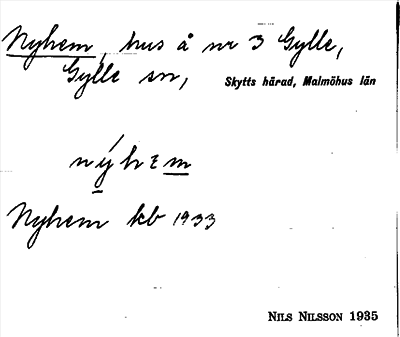 Nyhem, hus å nr 3 Gylle,
Gylle sn, Skytts härad, Malmöhus län
nýhɛm
Nyhem kb 1933
NILS NILSSON 1935